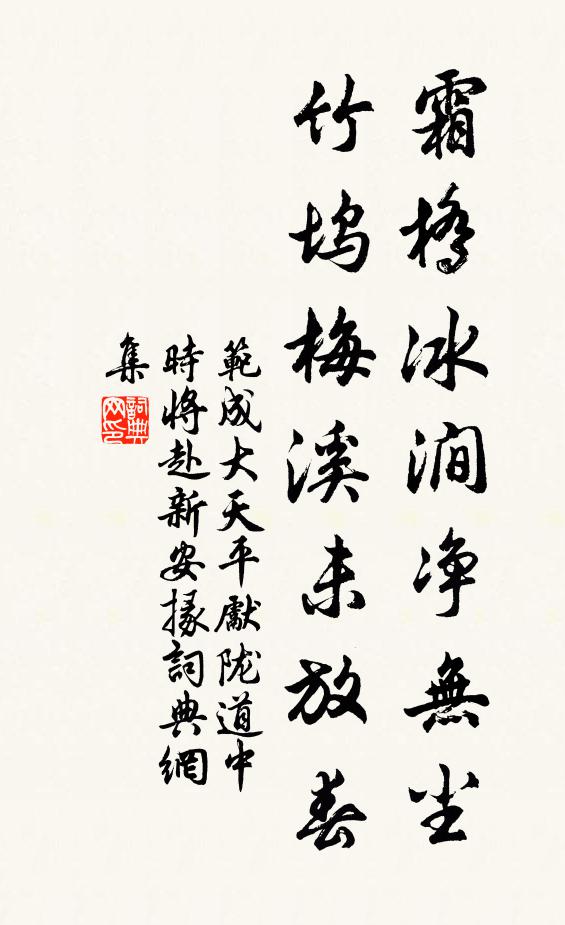 霜橋冰澗净無尘
竹坞梅溪未放春
範成大天平獻陇道中
時将赴新安掾詞典網
集
詞典
网印